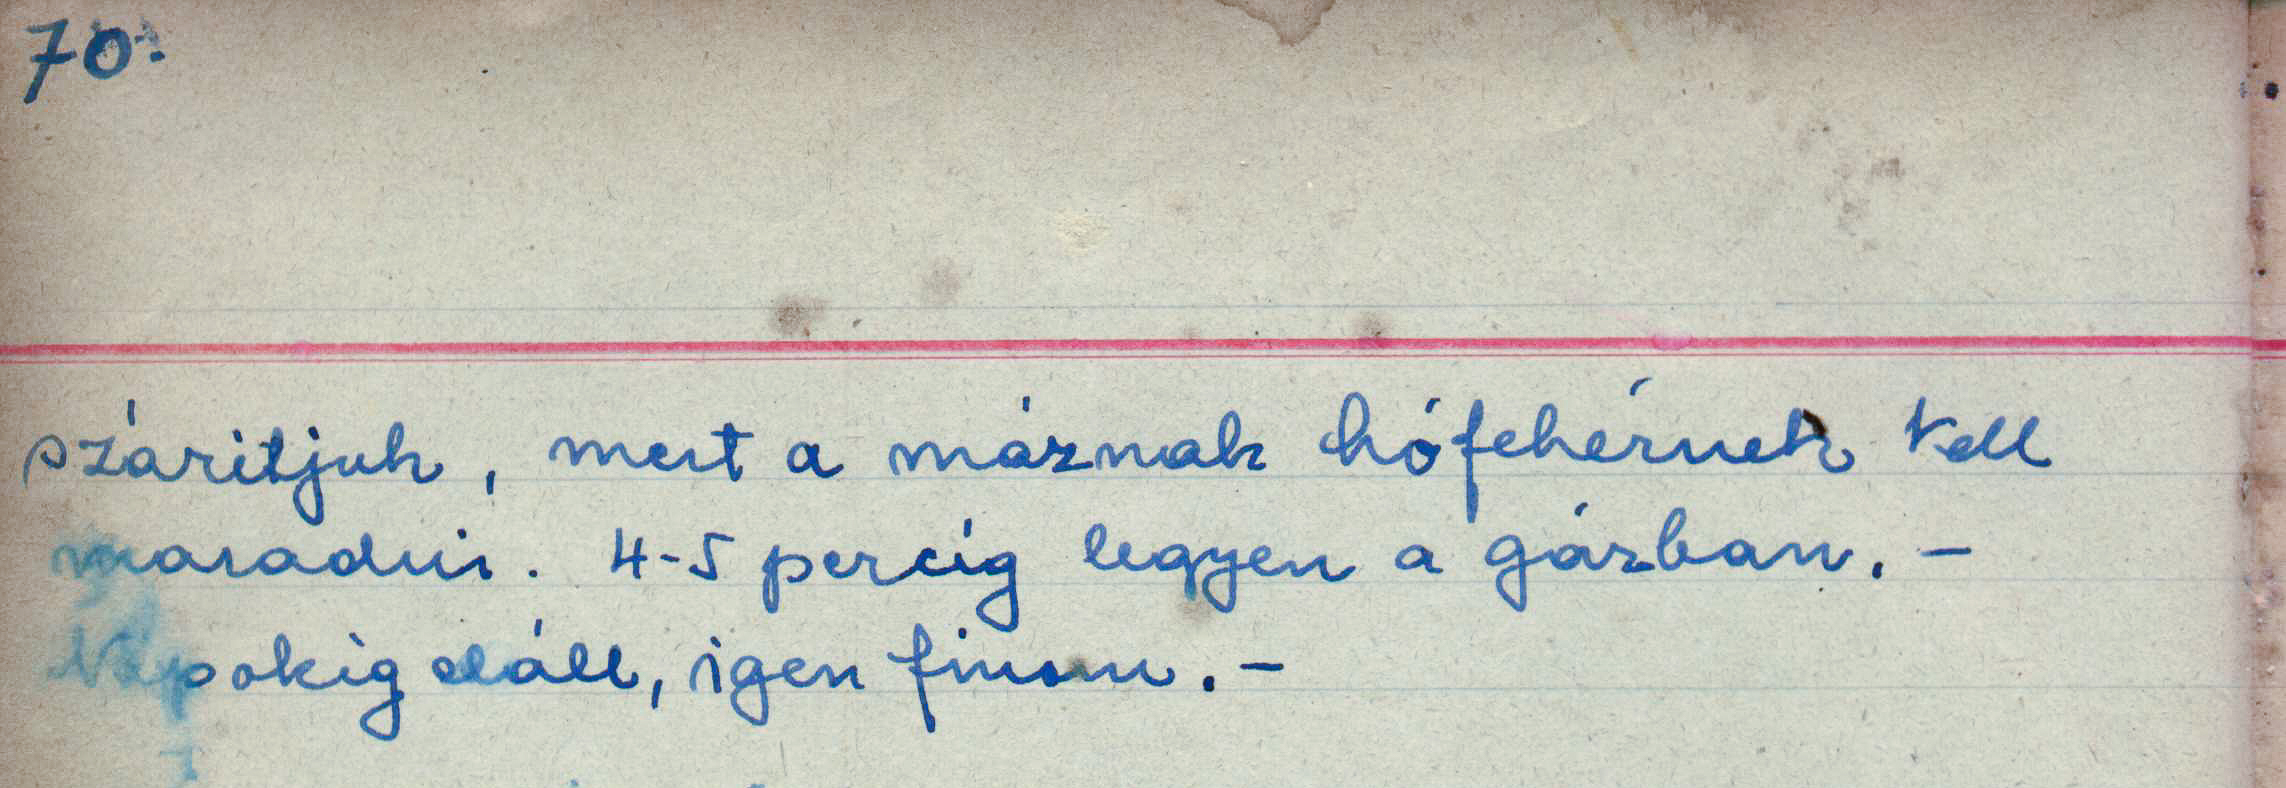 70.
száritjuk, mert a máznak hófehérnek kell
maradni. 4-5 percig legyen a gázban. -
Napokig eláll, igen finom. -